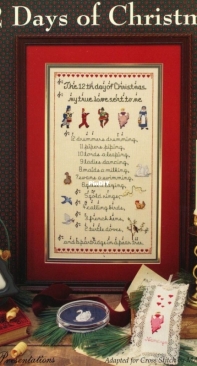 2 Days of Christm
This 12th day of Christmas
my true love sent to me
12 drummers drumming,
11 pipers piping,
10 lords a leaping,
9 ladies dancing,
8 maids a milking,
7 swans a swimming,
laying,
5 gold rings,
4 calling birds,
3 french hens,
2 turtle doves,
and a partridge in a pear tree.
Presentations
Adapted for Cross Stitch